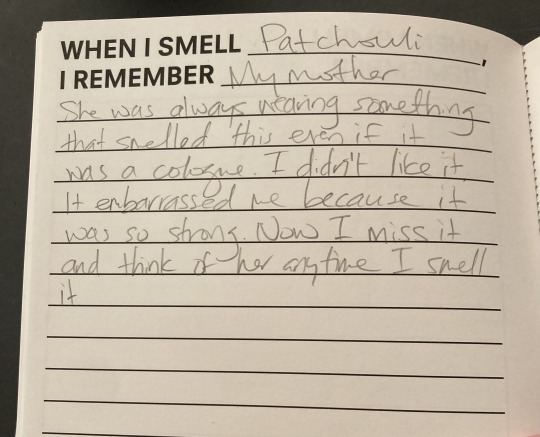 WHEN I SMELL Patchouli,
I REMEMBER My mother
She was always wearing something
that smelled this even if it
was a cologne. I didn't like it.
It embarrassed me because it
was so strong. Now I miss it
and think of her anytime I smell
it